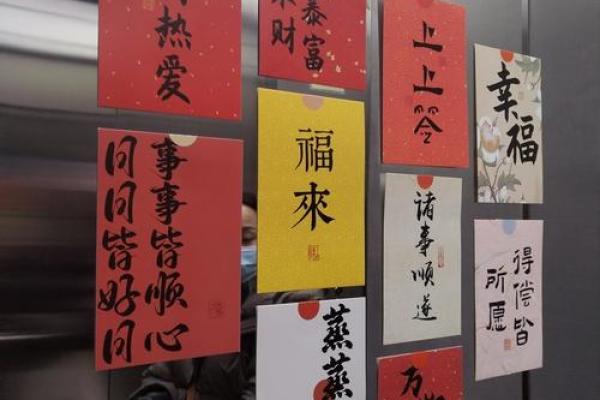 热爱
富
财
上上签
幸福
事事皆順心
日日皆好日
福來
诸事順遂
得偿皆
所愿
蒸蒸
万